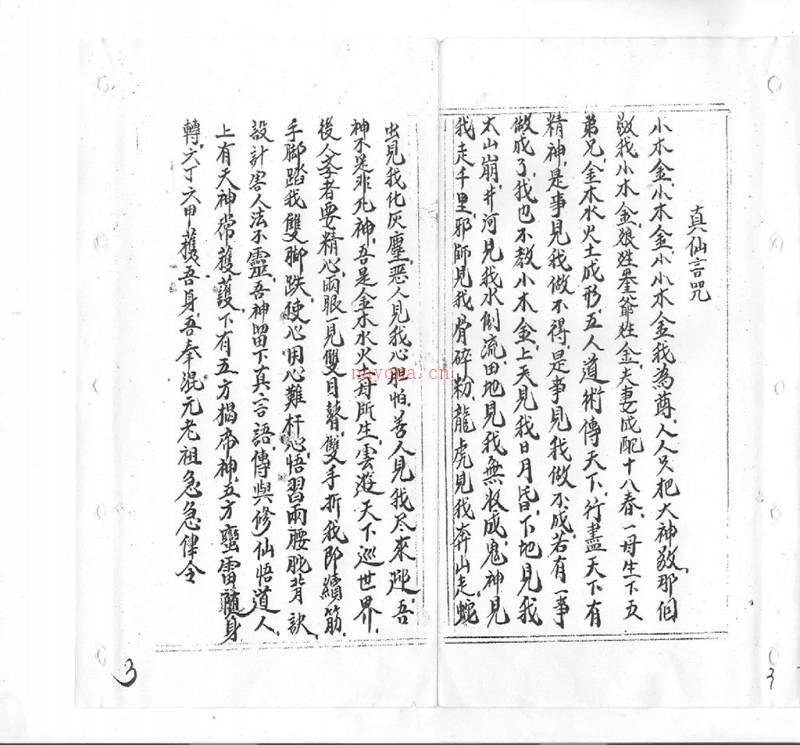 真仙言咒
小木金小木金小小木金我為尊人人只把大神敬那個
敬我小木金娘姓爹姓金夫妻成配十八春一母生下五
弟兄金木水火土成形五人道術傳天下行盡天下有
精神是事見我做不得是事見我做不成若有一事
做成了我也不教小木金上天見我日月昏下地見我
太山崩井河見我水倒流田地見我無收成鬼神見
我走千里邪師見我骨碎粉龍虎見我奔山走蛇
虫見我化灰塵惡人見我心胆怕善人見我尽來迎吾
神不是非凡神吾是金木水火母所生雲遊天下巡世界
後人李者要精心兩眼一見雙目瞽雙手折我即續筋
手脚踏我雙脚跌使心用心難杆心悟習兩腰駝背訣
設計客人法不靈吾神留下真言語傳與修仙悟道人
上有天神常護護下有五方揭帝神五方蛮雷隨身
轉六丁六甲護吾身吾奉混元老祖急急律令
3
3
nayona.cn